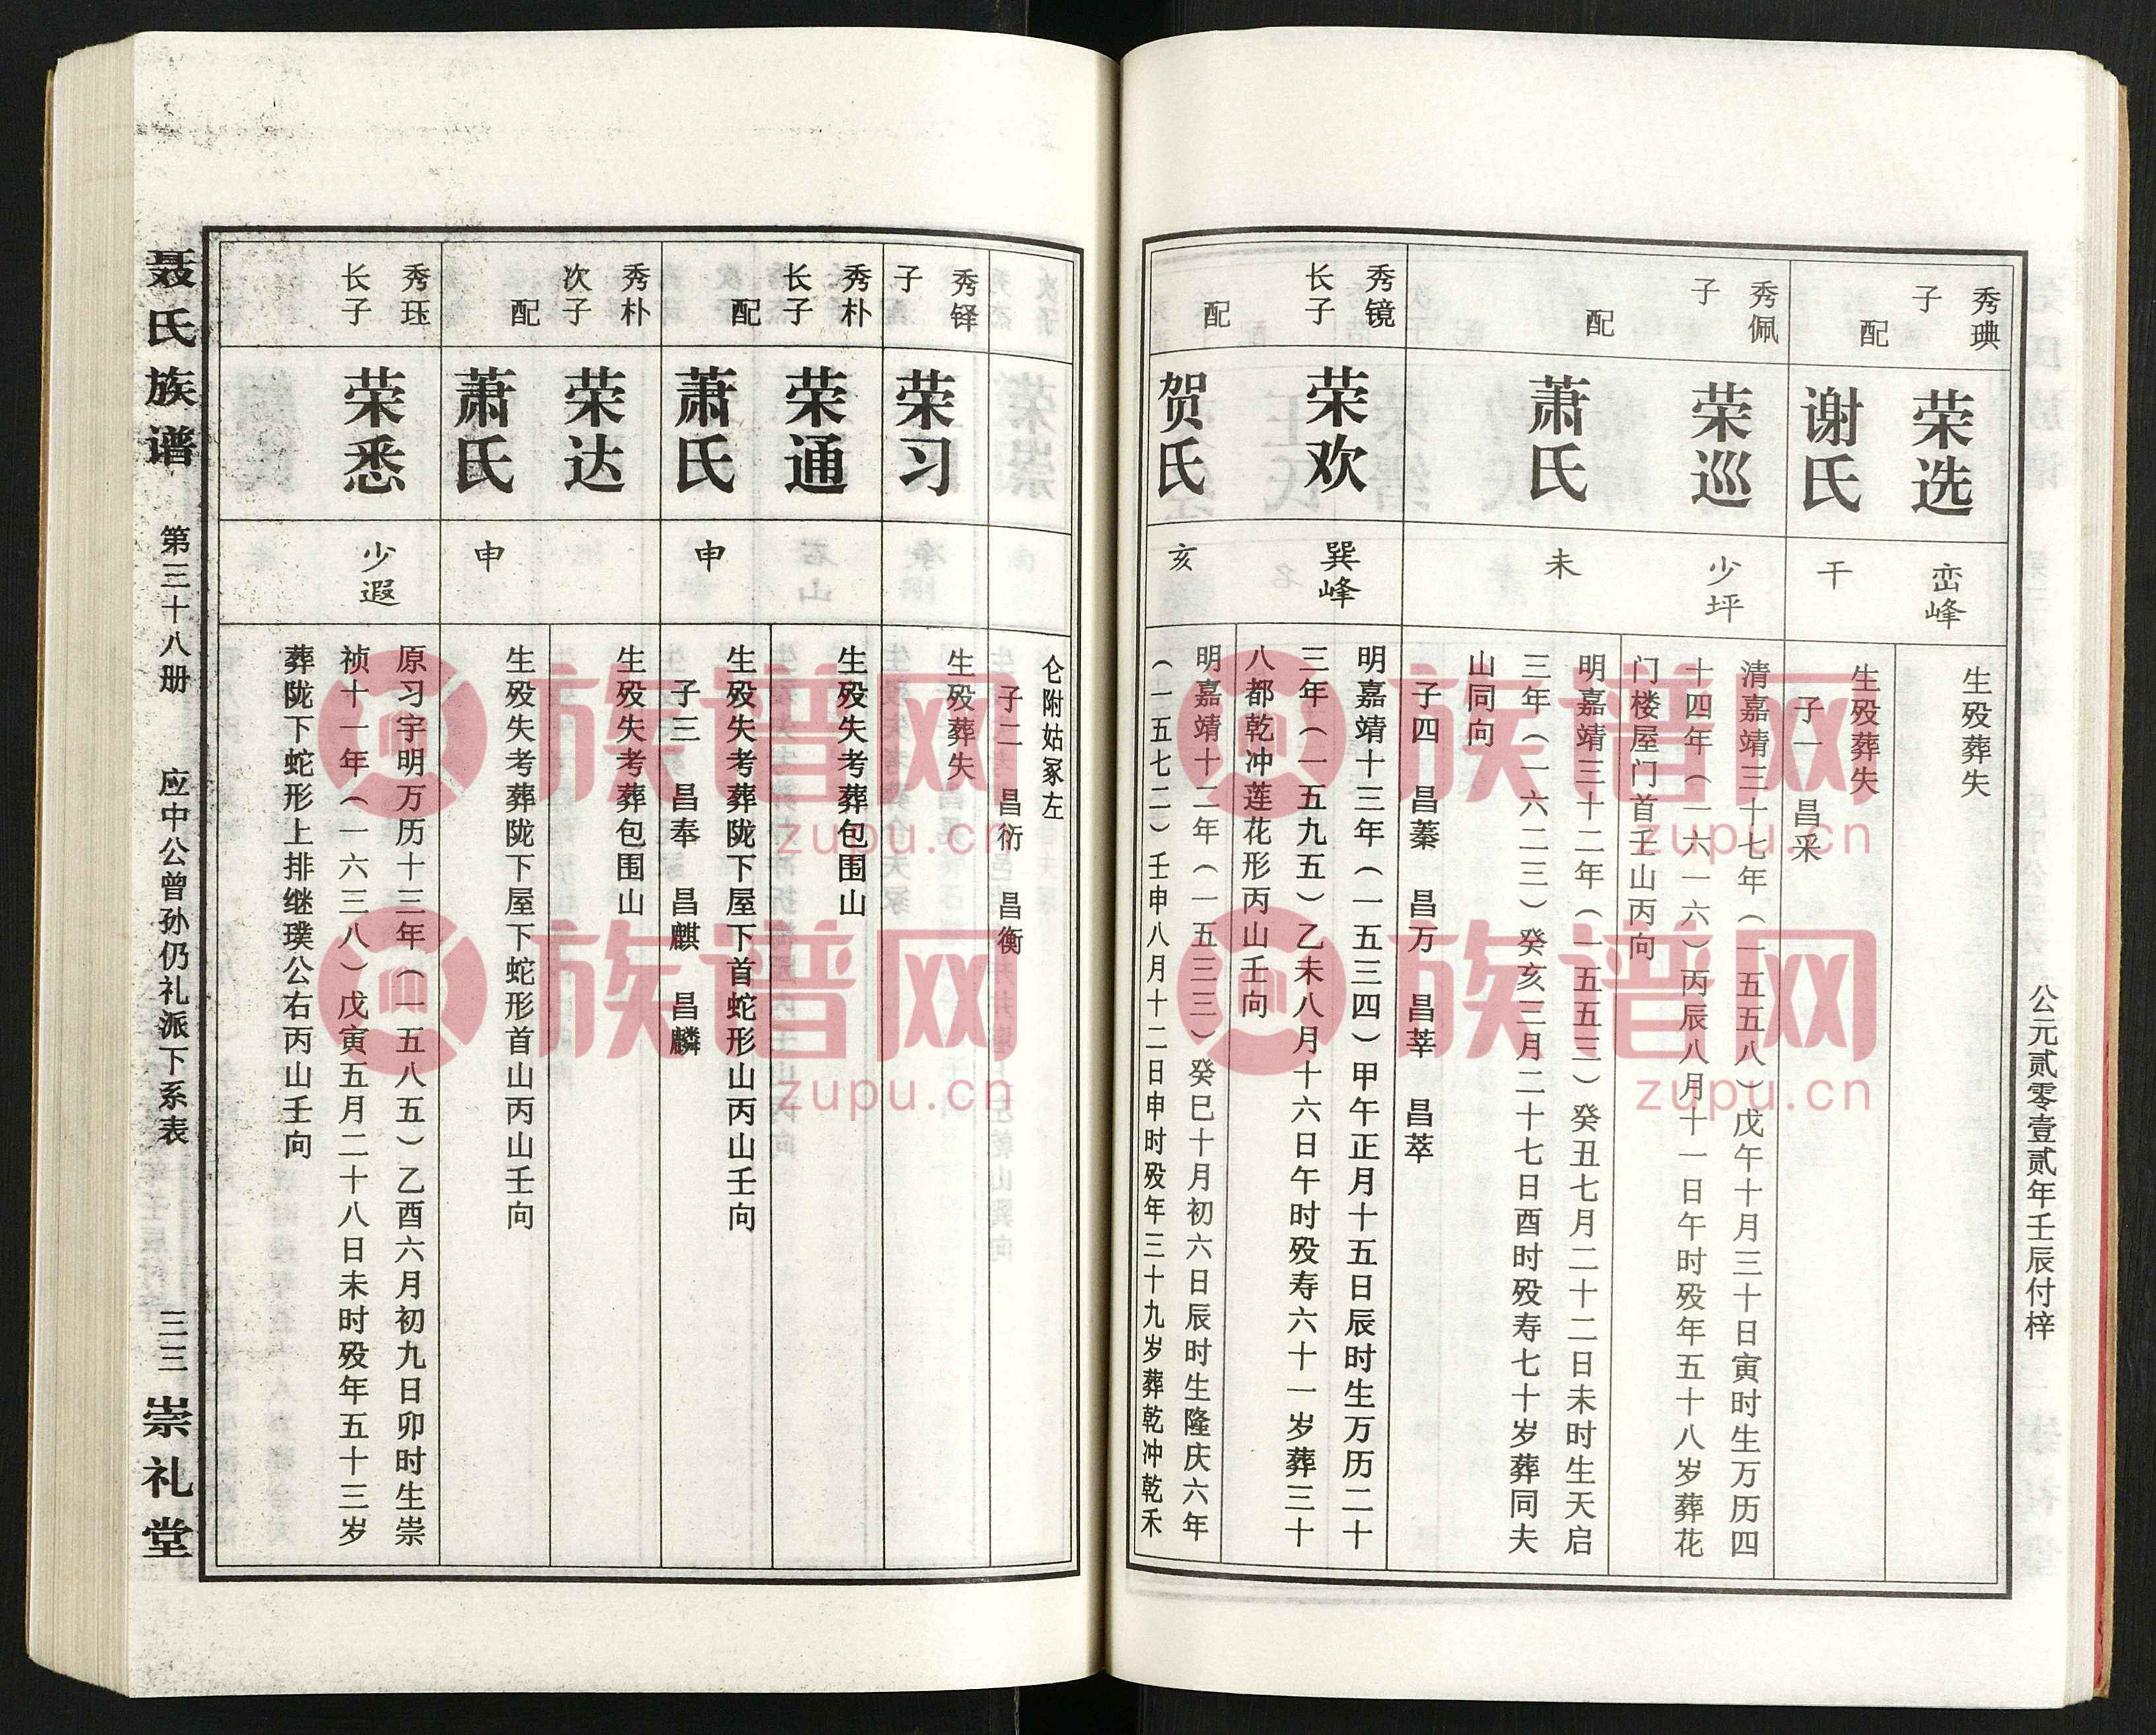 公元贰零壹贰年壬辰付梓
秀琠
子
荣选
峦峰
生殁葬失
配
谢氏
干
生殁葬失
子一 昌采
秀佩
子
荣巡
少坪
清嘉靖三十七年（一五五八）戊午十月三十日寅时生万历四
十四年（一六一六）丙辰八月十一日午时殁年五十八岁葬花
门楼屋门首壬山丙向
配
萧氏
未
明嘉靖三十二年（一五五三）癸丑七月二十二日未时生天启
三年（一六二三）癸亥三月二十七日酉时殁寿七十岁葬同夫
山同向
子四 昌蓁 昌万 昌莘 昌萃
秀镜
长子
荣欢
巽峰
明嘉靖十三年（一五三四）甲午正月十五日辰时生万历二十
三年（一五九五）乙未八月十六日午时殁寿六十一岁葬三十
八都乾冲莲花形丙山壬向
配
贺氏
亥
明嘉靖十二年（一五三三）癸巳十月初六日辰时生隆庆六年
（一五七二）壬申八月十二日申时殁年三十九岁葬乾冲乾禾
仑附姑冢左
子二 昌衍 昌衡
秀铎
子
荣习
生殁葬失
秀朴
长子
荣通
生殁失考葬包围山
配
萧氏
申
生殁失考葬陇下屋下首蛇形山丙山壬向
子三 昌奉 昌麒 昌麟
秀朴
次子
荣达
生殁失考葬包围山
配
萧氏
申
生殁失考葬陇下屋下蛇形首山丙山壬向
秀珏
长子
荣悉
少遐
原习宇明万历十三年（一五八五）乙酉六月初九日卯时生崇
祯十一年（一六三八）戊寅五月二十八日未时殁年五十三岁
葬陇下蛇形上排继璞公右丙山壬向
聂氏族谱 第三十八册 应中公曾孙仍礼派下系表 三三 崇礼堂
族谱网
zupu.cn
族谱网
zupu.cn
族谱网
zupu.cn
族谱网
zupu.cn